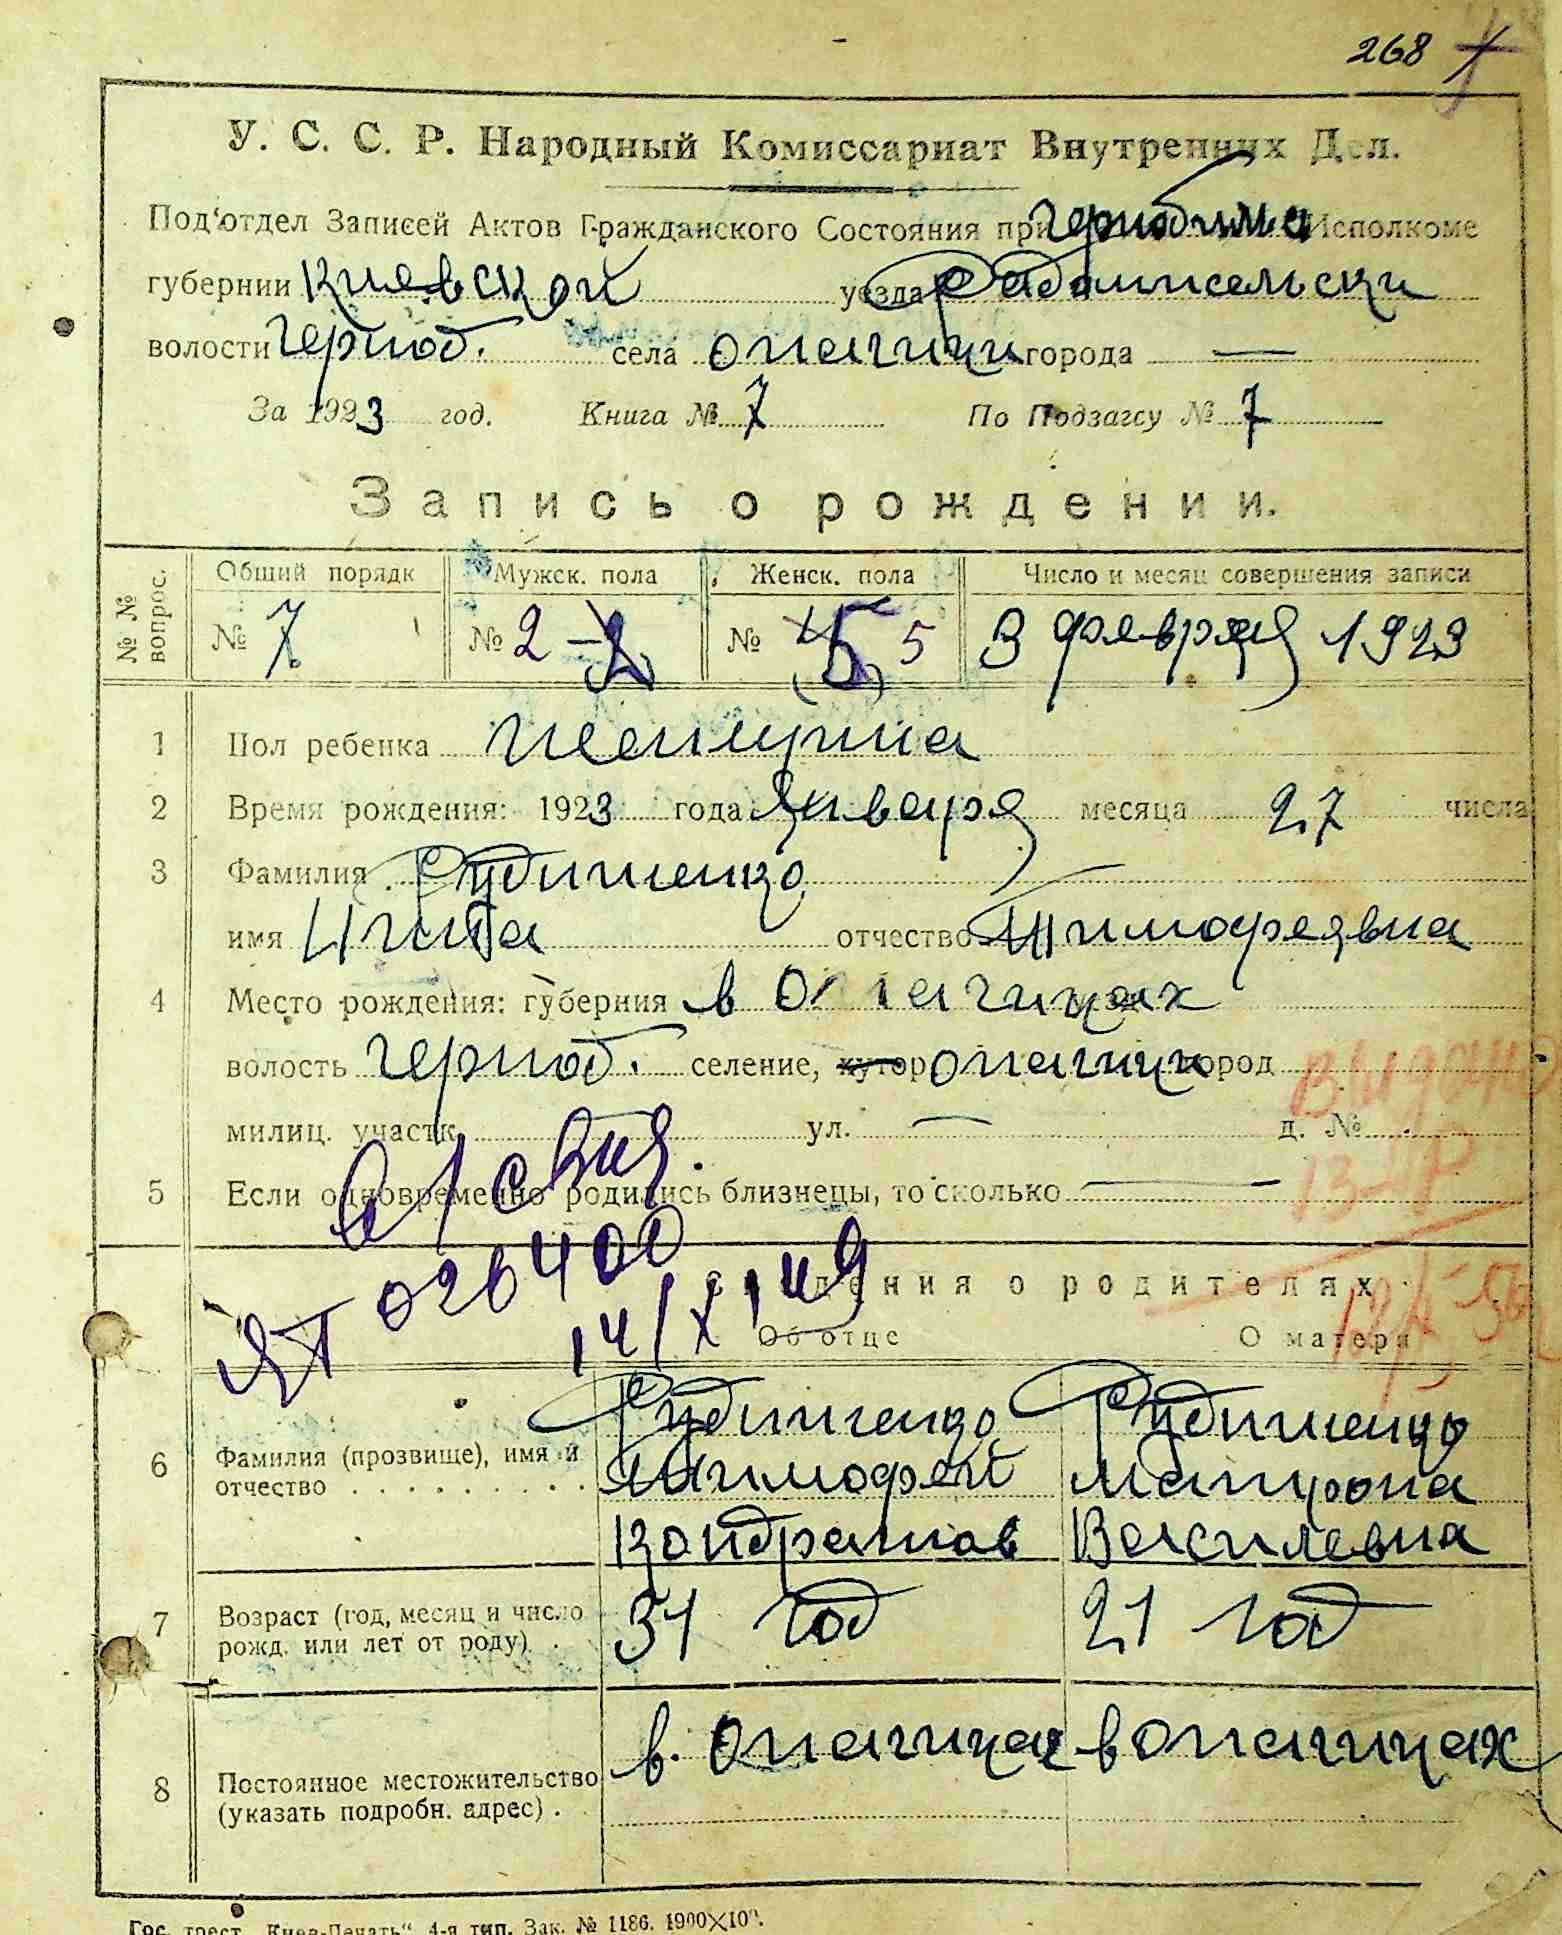 268
У. С. С. Р. Народный Комиссариат Внутренних Дел.
Под'отдел Записей Актов Гражданского Состояния при Чернобыльс Исполкоме
губернии Киевской уезда Радомисельски
волости Черноб. села Опачичи города —
За 1923 год. Книга № 7 По Подзагсу № 7
Запись о рождении.
№ № вопрос. Общий порядк Мужск. пола Женск. пола Число и месяц совершения записи
№ 7 № 2 № 5 5 3 февраля 1923
1 Пол ребенка женщина
2 Время рождения: 1923 года Января месяца 27 числа
3 Фамилия Рудниченко
имя отчество Тимофеевна
4 Место рождения: губерния в Опачичах
волость Черноб. селение, хутор Опачичи город
милиц. участк. ул. — д. №
Выдано
5 Если одновременно родились близнецы, то сколько —
ЯТ 026400
14/X 49
Сведения о родителях
Об отце О матери
6 Фамилия (прозвище), имя и отчество
Тимофей Матрона
Кондратов Василевна
7 Возраст (год, месяц и число рожд. или лет от роду). 31 год 21 год
8 Постоянное местожительство (указать подробн. адрес) . в. Опачичах в Опачичах
Гос. трест „Киев-Печать“ 4-я тип. Зак. № 1186. 1900×100.